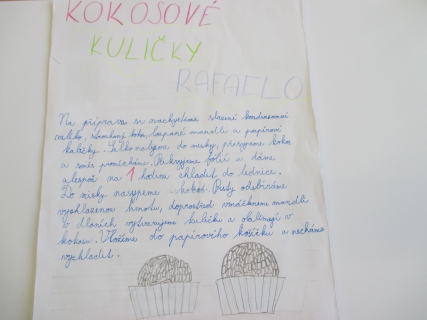 KOKOSOVÉ
KULIČKY
RAFAELO
Na přípravu si nachystáme slazené kondenzované
mléko, strouhaný kokos, loupané mandle a papírové
košíčky. Salko nalijeme do misky, přisypeme kokos
a směs promícháme. Přikryjeme fólií a dáme
alespoň na 1 hodinu chladit do lednice.
Do misky nasypeme kokos. Poté odebíráme
vychlazenou hmotu, doprostřed vmáčkneme mandli
v dlaních vytvarujeme kuličku a obalíme ji v
kokosu. Vložíme do papírového košíčku a necháme
vychladit.